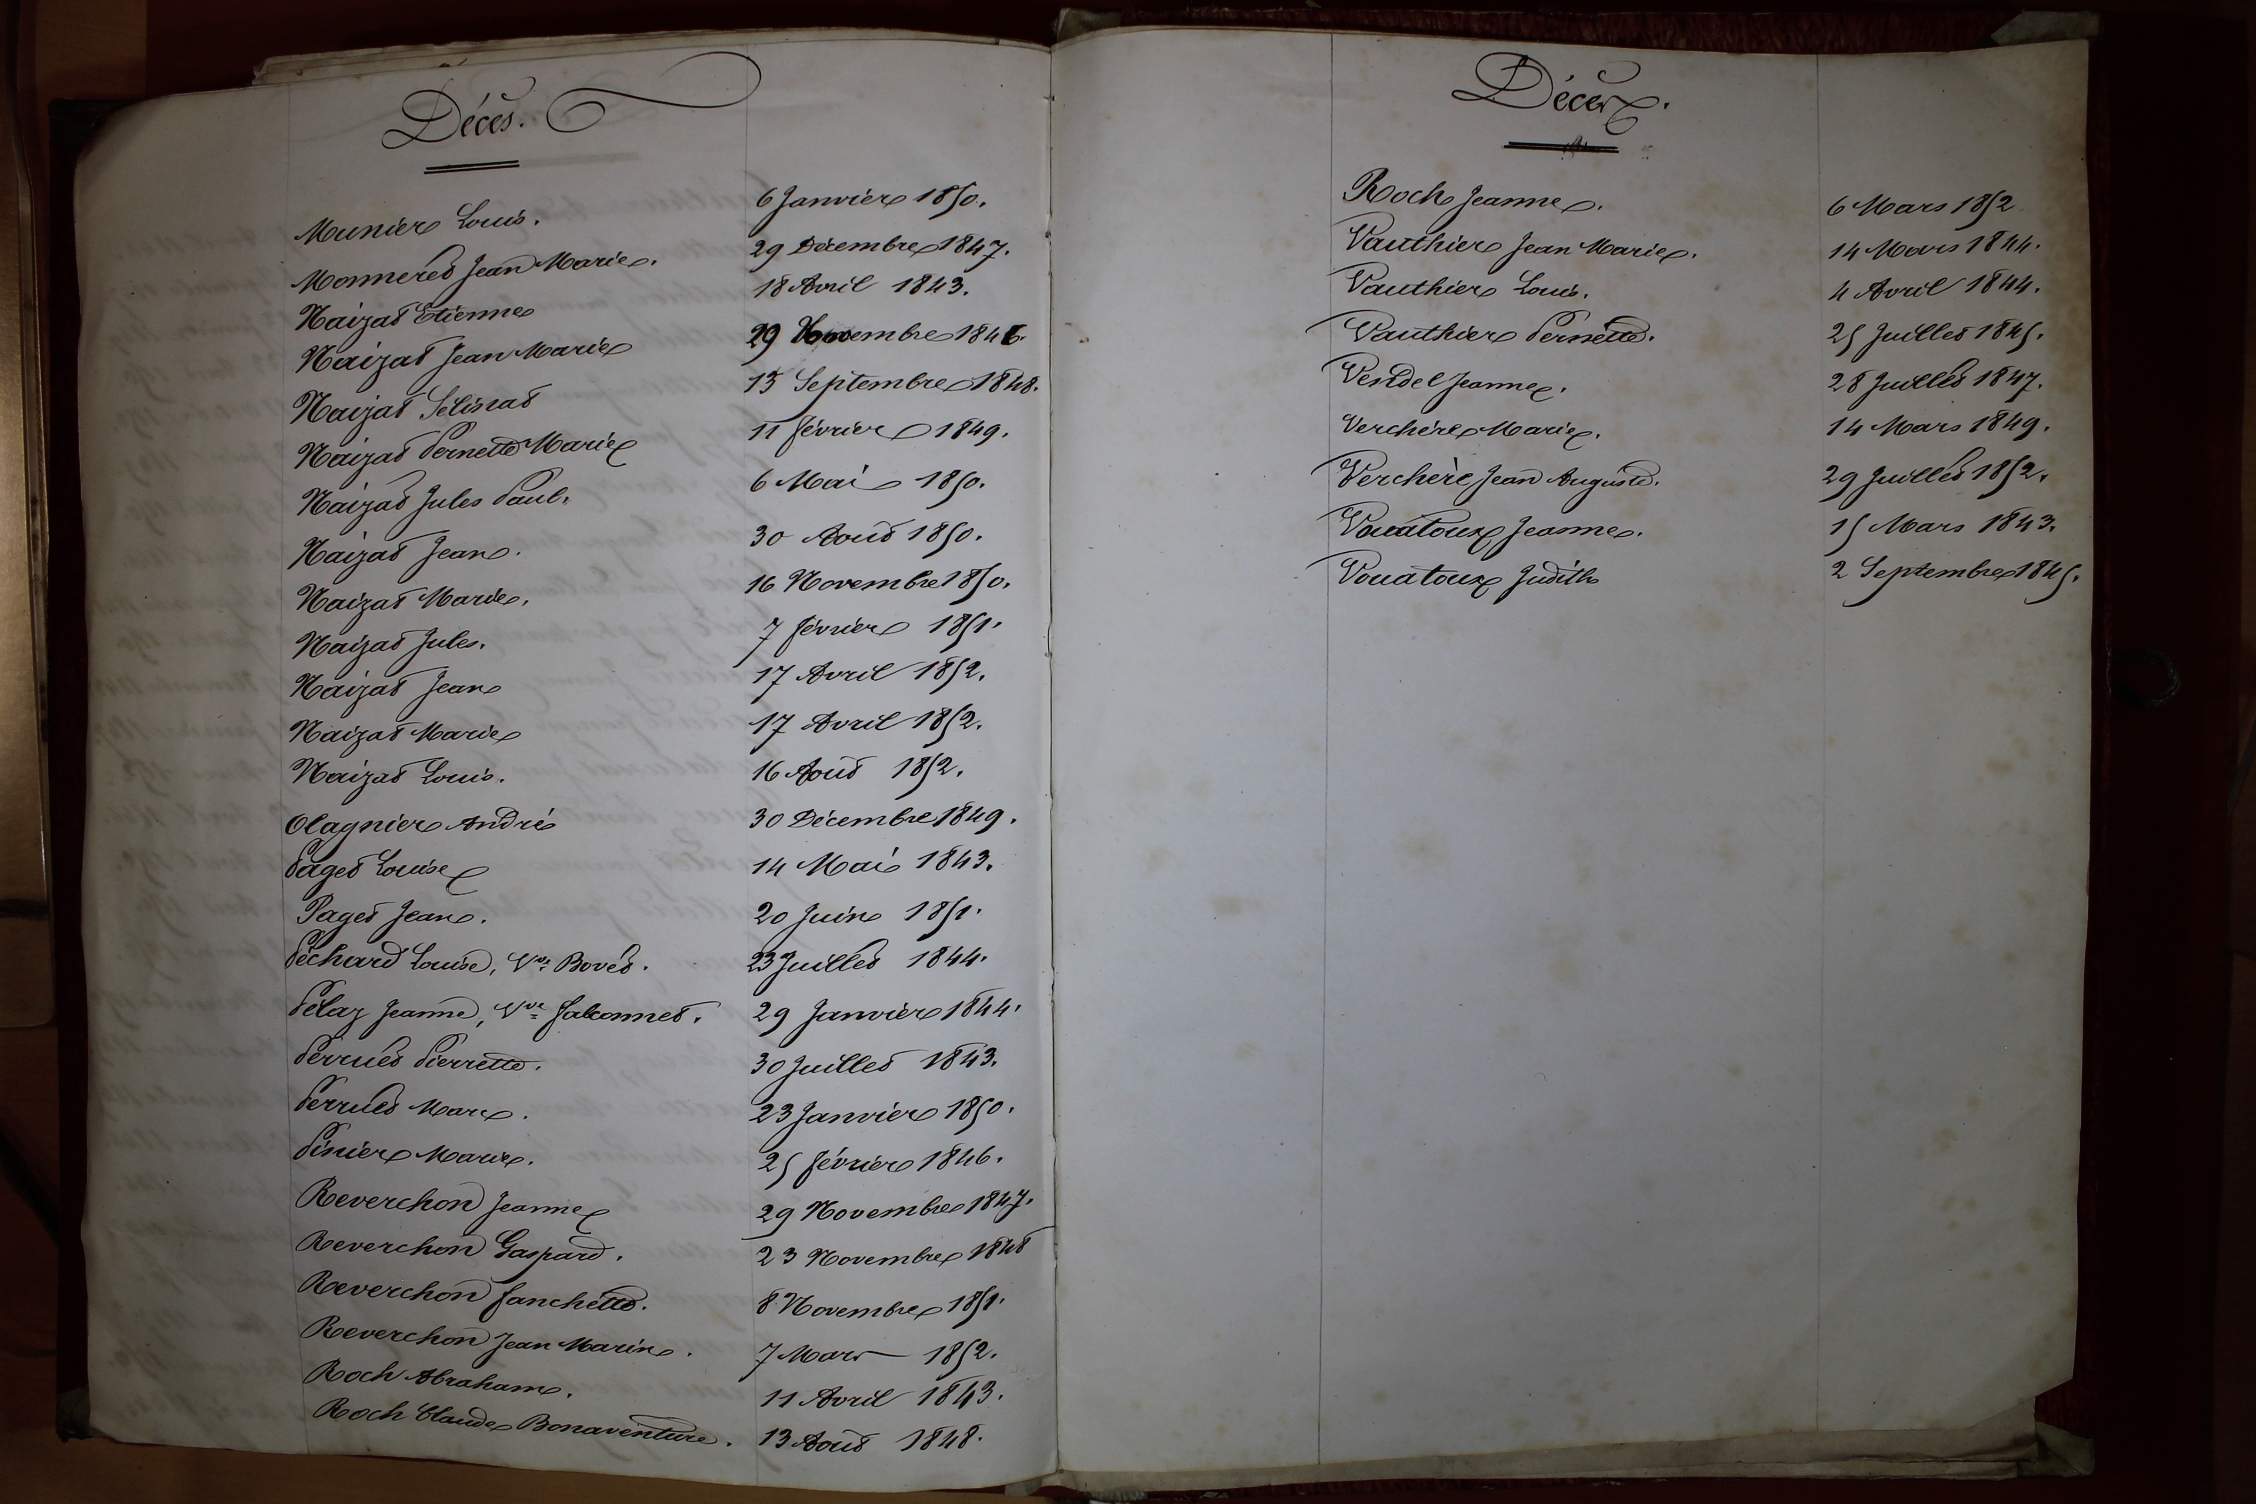 Décès.
Munier Louis. 6 Janvier 1850.
Monneret Jean Marie. 29 Décembre 1847.
Naizat Etienne 18 Avril 1843.
Naizat Jean Marie 29 Novembre 1846.
Naizat 13 Septembre 1848.
Naizat Pernette Marie 11 février 1849.
Naizat Jules Paul. 6 Mai 1850.
Naizat Jean. 30 Aout 1850.
Naizat Marie. 16 Novembre 1850.
Naizat Jules. 7 février 1851.
Naizat Jean 17 Avril 1852.
Naizat Marie 17 Avril 1852.
Naizat Louis. 16 Aout 1852.
Olagnier André 30 Décembre 1849.
Paget Louise 14 Mai 1843.
Paget Jean. 20 Juin 1851.
Péchard Louise, Vve Bovet. 23 Juillet 1844.
Pélaz Jeanne, Vve falconnet. 29 Janvier 1844.
Perruet Pierrette. 30 Juillet 1843.
Perruet Marc. 23 Janvier 1850.
Pinier Marie. 25 février 1846.
Reverchon Jeanne 29 Novembre 1847.
Reverchon Gaspard. 23 Novembre 1848
Reverchon fanchette. 8 Novembre 1851.
Reverchon Jean Marin. 7 Mars 1852.
Roch Abraham. 11 Avril 1843.
Roch Claude Bonaventure. 13 Aout 1848.
Décès.
Roch Jeanne. 6 Mars 1852
Vauthier Jean Marie. 14 Mars 1844.
Vauthier Louis. 4 Avril 1844.
Vauthier Pernette. 25 Juillet 1845.
Vendel Jeanne. 28 Juillet 1847.
Verchère Marie. 14 Mars 1849.
Verchère Jean Auguste. 29 Juillet 1852.
Vouatoux Jeanne. 15 Mars 1843.
Vouatoux Judith 2 Septembre 1845.